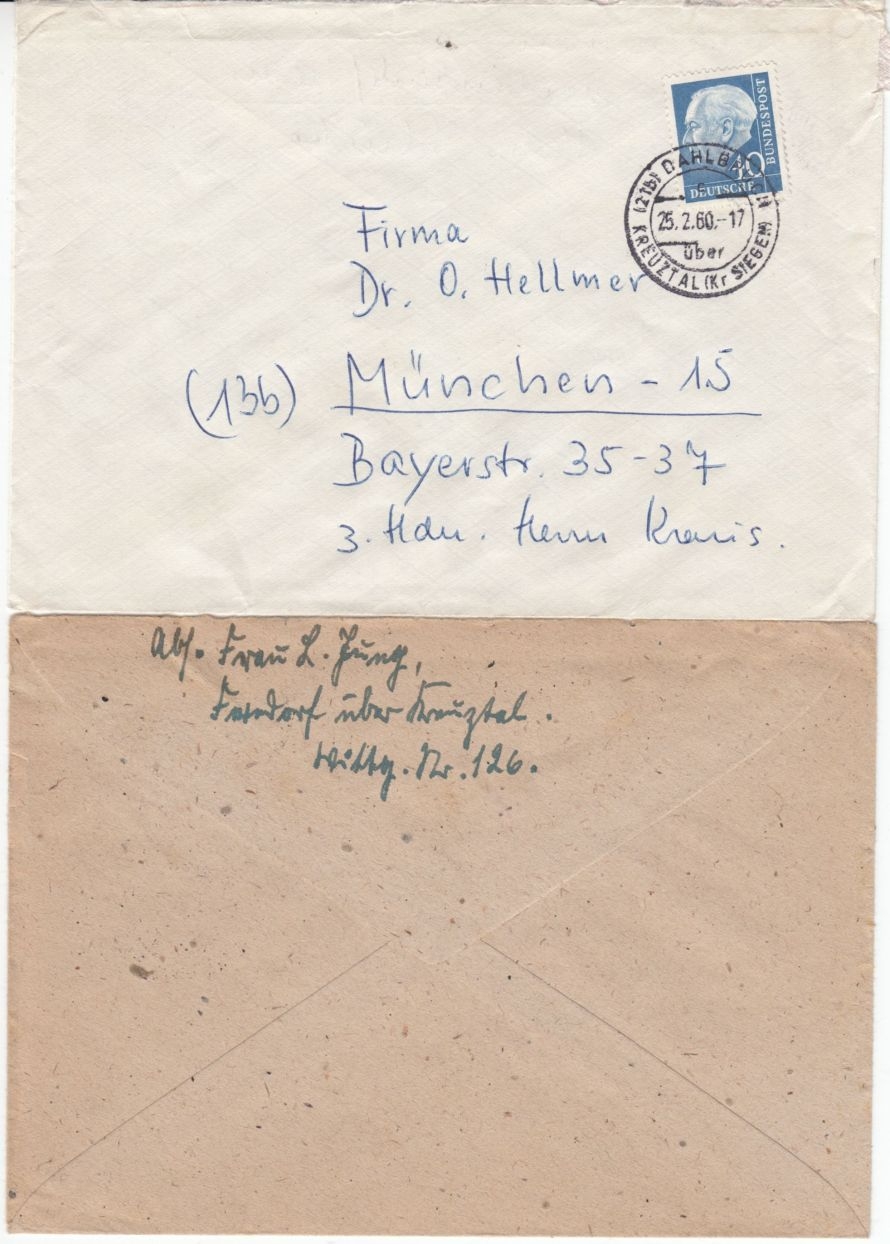 DEUTSCHE BUNDESPOST
40
(21b) DAHLBRUCH
25.2.60.-17
über
KREUZTAL (Kr SIEGEN)
Firma
Dr. O. Hellmer
(13b) München - 15
Bayerstr. 35-37
z. Hdn. Herrn
Abs. Frau L. Jung,
Ferndorf über Kreuztal.
Wittg. Nr. 126.